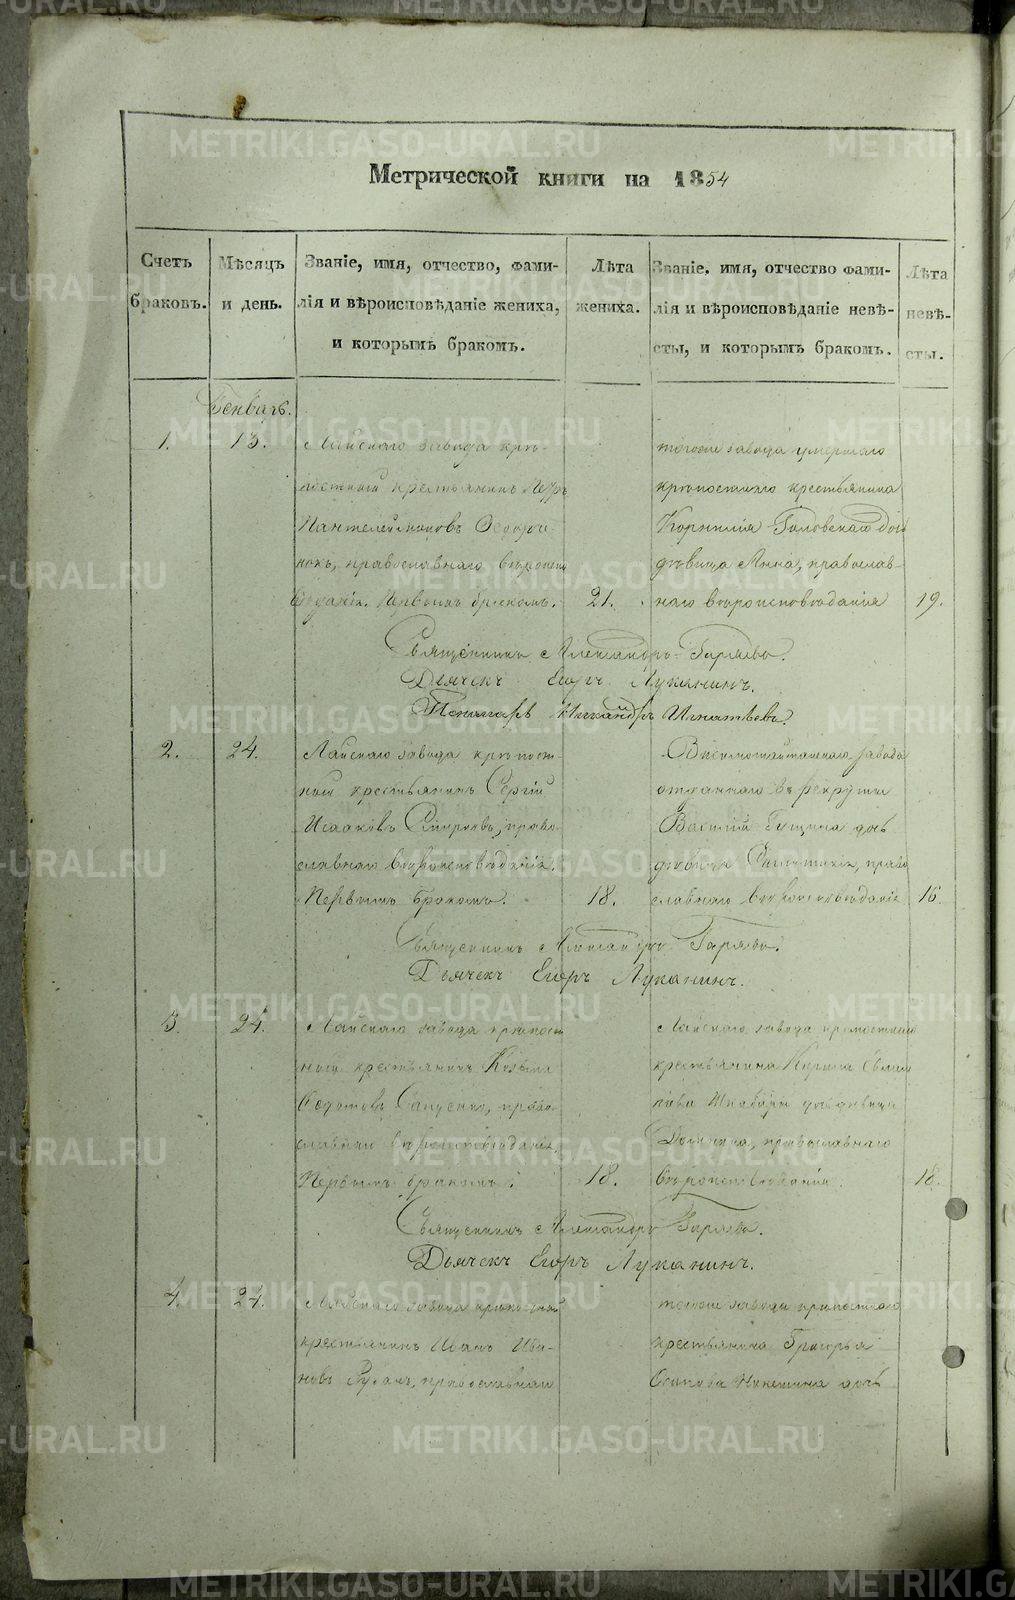 METRIKI.GASO-URAL.RU
Метрической книги на 1854
Счетъ браковъ.
Мѣсяцъ и день.
Званіе, имя, отчество, фами-
лія и вѣроисповѣданіе жениха,
и которымъ бракомъ.
Лѣта жениха.
Званіе. имя, отчество фами-
лія и вѣроисповѣданіе невѣ-
сты, и которымъ бракомъ.
Лѣта невѣ-
сты.
Генварь.
1. 13. Лайскаго завода крѣ-
постный крестьянинъ Петръ
Пантелеймоновъ
православнаго вѣроиспо
вѣданія. Первымъ бракомъ. 21.
тогоже завода умершаго
крѣпостнаго крестьянина
Корнилія дочь
дѣвица Анна, православ-
наго вѣроисповѣданія 19.
Священникъ Александръ Гаряевъ.
Дьячекъ Егоръ Луканинъ.
Пономарь Никандръ Игнатьевъ.
2. 24. Лайскаго завода крѣпост-
ный крестьянинъ Сергій
Исааковъ право-
славнаго вѣроисповѣданія.
Первымъ бракомъ. 18.
Висимошайтанскаго завода
отданнаго въ рекруты
Василія Гущина дочь
дѣвица право
славнаго вѣроисповѣданія 16.
Священникъ Александръ Гаряевъ.
Дьячекъ Егоръ Луканинъ.
3. 24. Лайскаго завода крѣпост
ный крестьянинъ Козьма
Федотовъ право-
славнаго вѣроисповѣданія.
Первымъ бракомъ. 18.
Лайскаго завода крѣпостнаго
крестьянина
дочь дѣвица
православнаго
вѣроисповѣданія. 18.
Священникъ Александръ Гаряевъ.
Дьячекъ Егоръ Луканинъ.
4. 24. Лайскаго завода крѣпостный
крестьянинъ Иванъ Ива-
новъ православнаго
тогоже завода крѣпостнаго
крестьянина Григорья
Осипова дочь